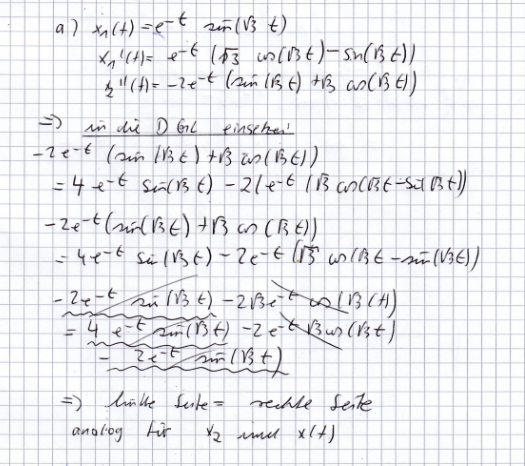 a) x₁(t) = e^-t sin(√3 t)
x₁'(t) = e^-t (√3 cos(√3 t) - sin(√3 t))
x₂''(t) = -2e^-t (sin(√3 t) + √3 cos(√3 t))
=> in die DGL einsetzen!
-2e^-t (sin(√3 t) + √3 cos(√3 t))
= 4 e^-t sin(√3 t) - 2(e^-t (√3 cos(√3 t - sin √3 t))
-2e^-t (sin(√3 t) + √3 cos(√3 t))
= 4e^-t sin(√3 t) - 2e^-t (√3 cos(√3 t - sin(√3 t))
-2e^-t sin(√3 t) - 2√3 e^-t cos(√3(t)
= 4 e^-t sin(√3 t) - 2e^-t √3 cos(√3 t)
- 2e^-t sin(√3 t)
=> linke Seite = rechte Seite
analog für x₂ und x(t)